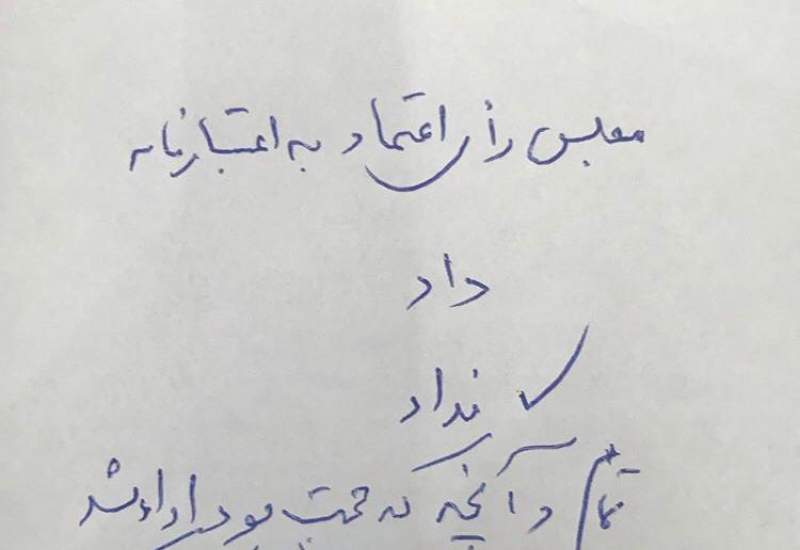 مجلس رأی اعتماد به اعتبارنامه
داد
✓ نداد
تمام و آنچه که حجت بود ادا شد